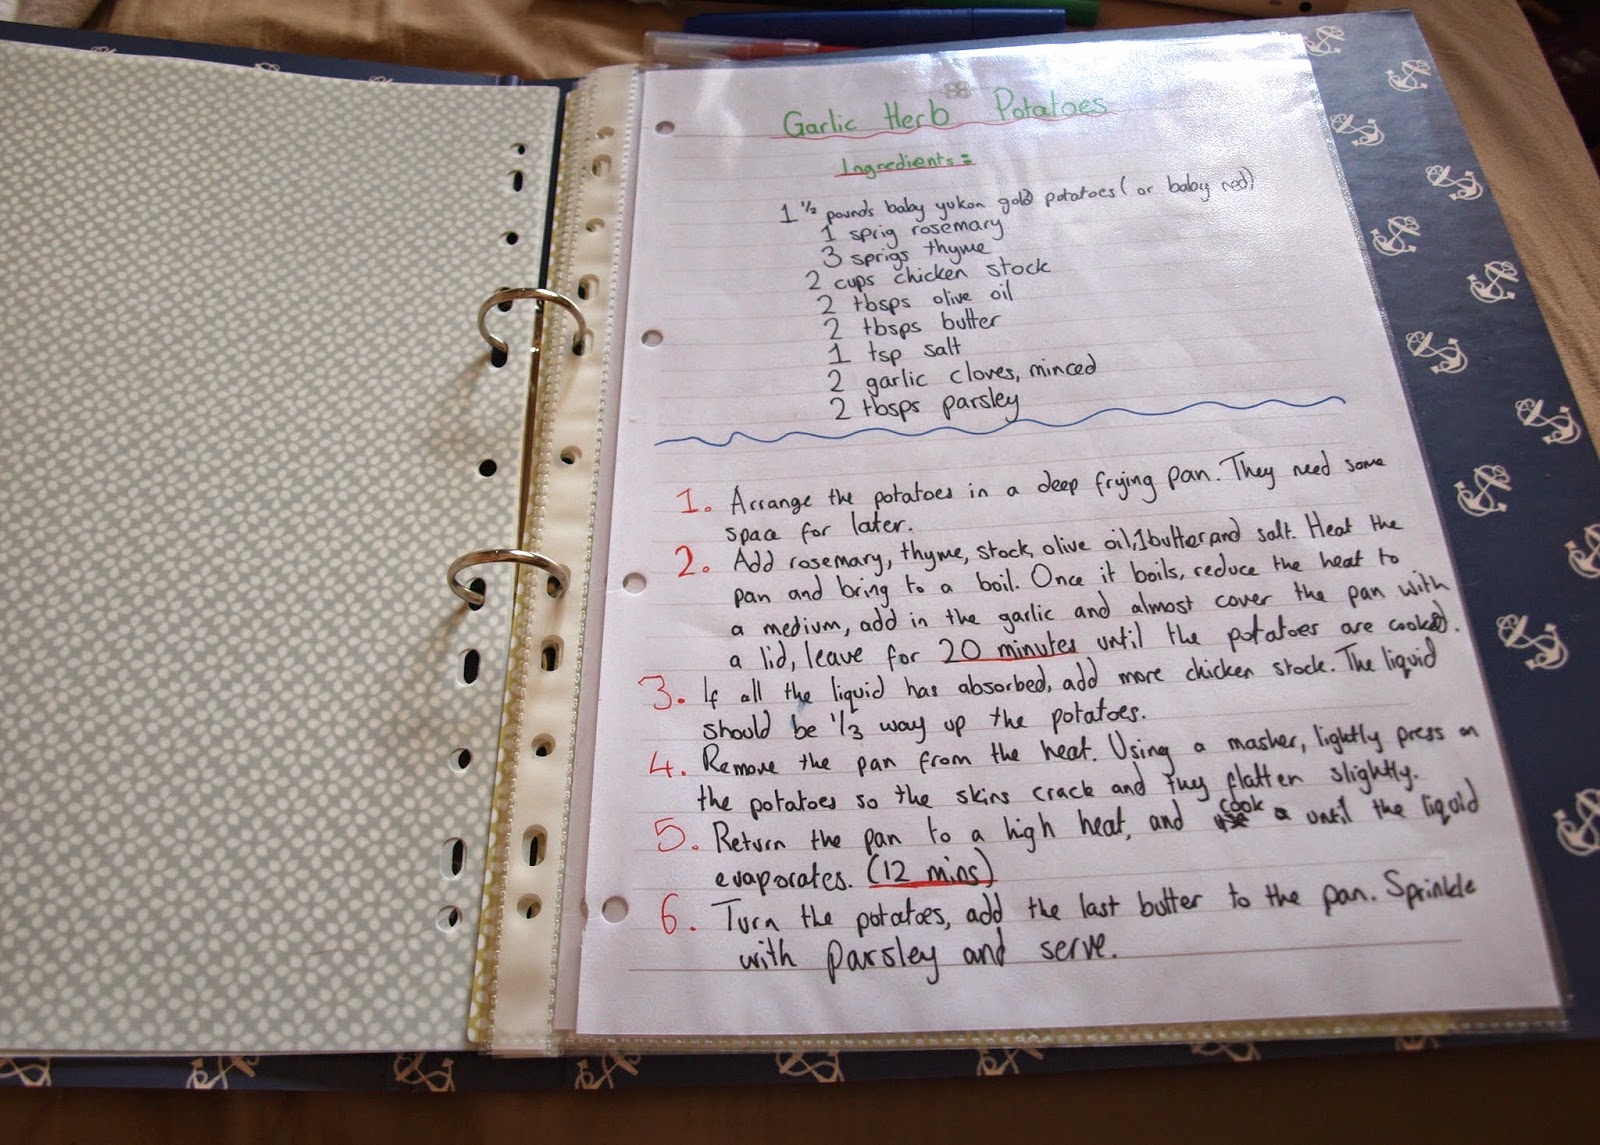 Garlic Herb Potatoes
Ingredients:
1 1/2 pounds baby yukon gold potatoes (or baby red)
1 sprig rosemary
3 sprigs thyme
2 cups chicken stock
2 tbsps olive oil
2 tbsps butter
1 tsp salt
2 garlic cloves, minced
2 tbsps parsley
1. Arrange the potatoes in a deep frying pan. They need some
space for later.
2. Add rosemary, thyme, stock, olive oil, 1 butter and salt. Heat the
pan and bring to a boil. Once it boils, reduce the heat to
a medium, add in the garlic and almost cover the pan with
a lid, leave for 20 minutes until the potatoes are cooked.
3. If all the liquid has absorbed, add more chicken stock. The liquid
should be 1/3 way up the potatoes.
4. Remove the pan from the heat. Using a masher, lightly press on
the potatoes so the skins crack and they flatten slightly.
5. Return the pan to a high heat, and cook until the liquid
evaporates. (12 mins)
6. Turn the potatoes, add the last butter to the pan. Sprinkle
with parsley and serve.